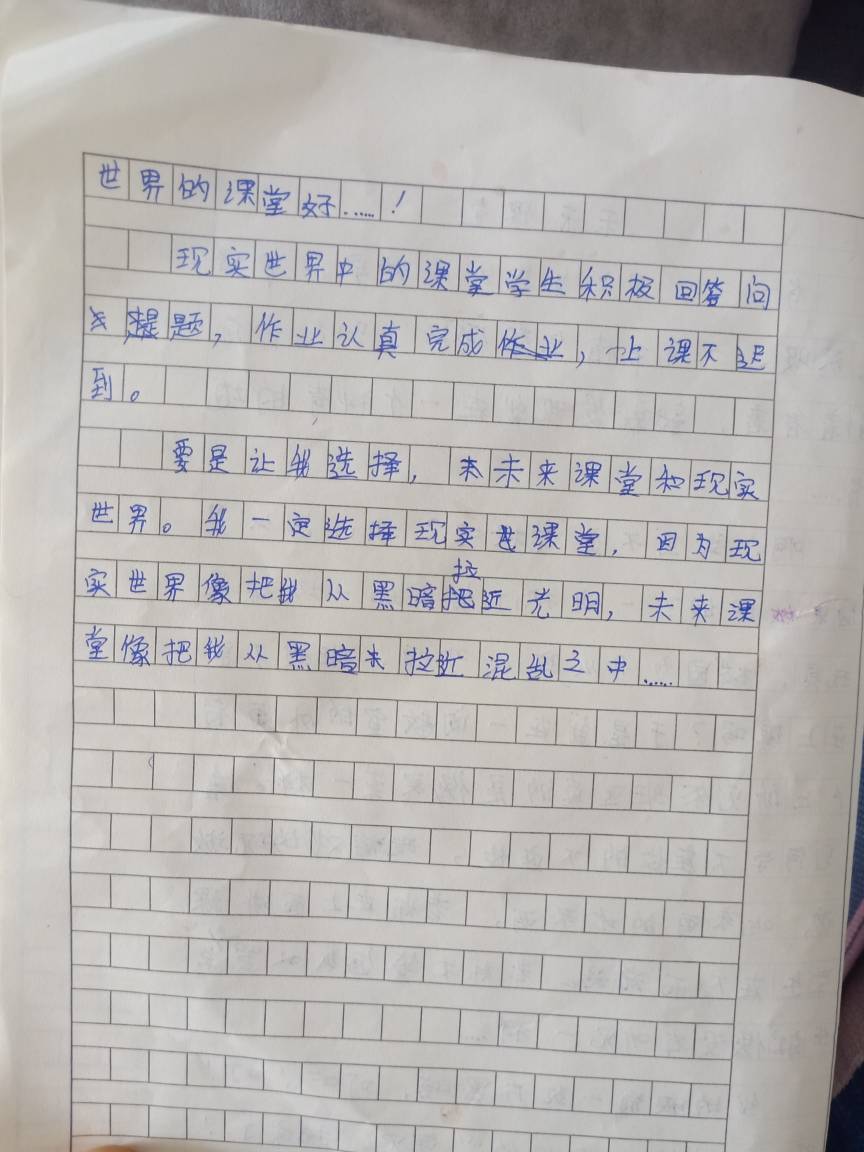 世界的课堂好……！
现实世界中的课堂学生积极回答问
题，作业认真完成，上课不迟
到。
要是让我选择，未来课堂和现实
世界。我一定选择现实世课堂，因为现
实世界像把我从黑暗拉近光明，未来课
堂像把我从黑暗拉近混乱之中……